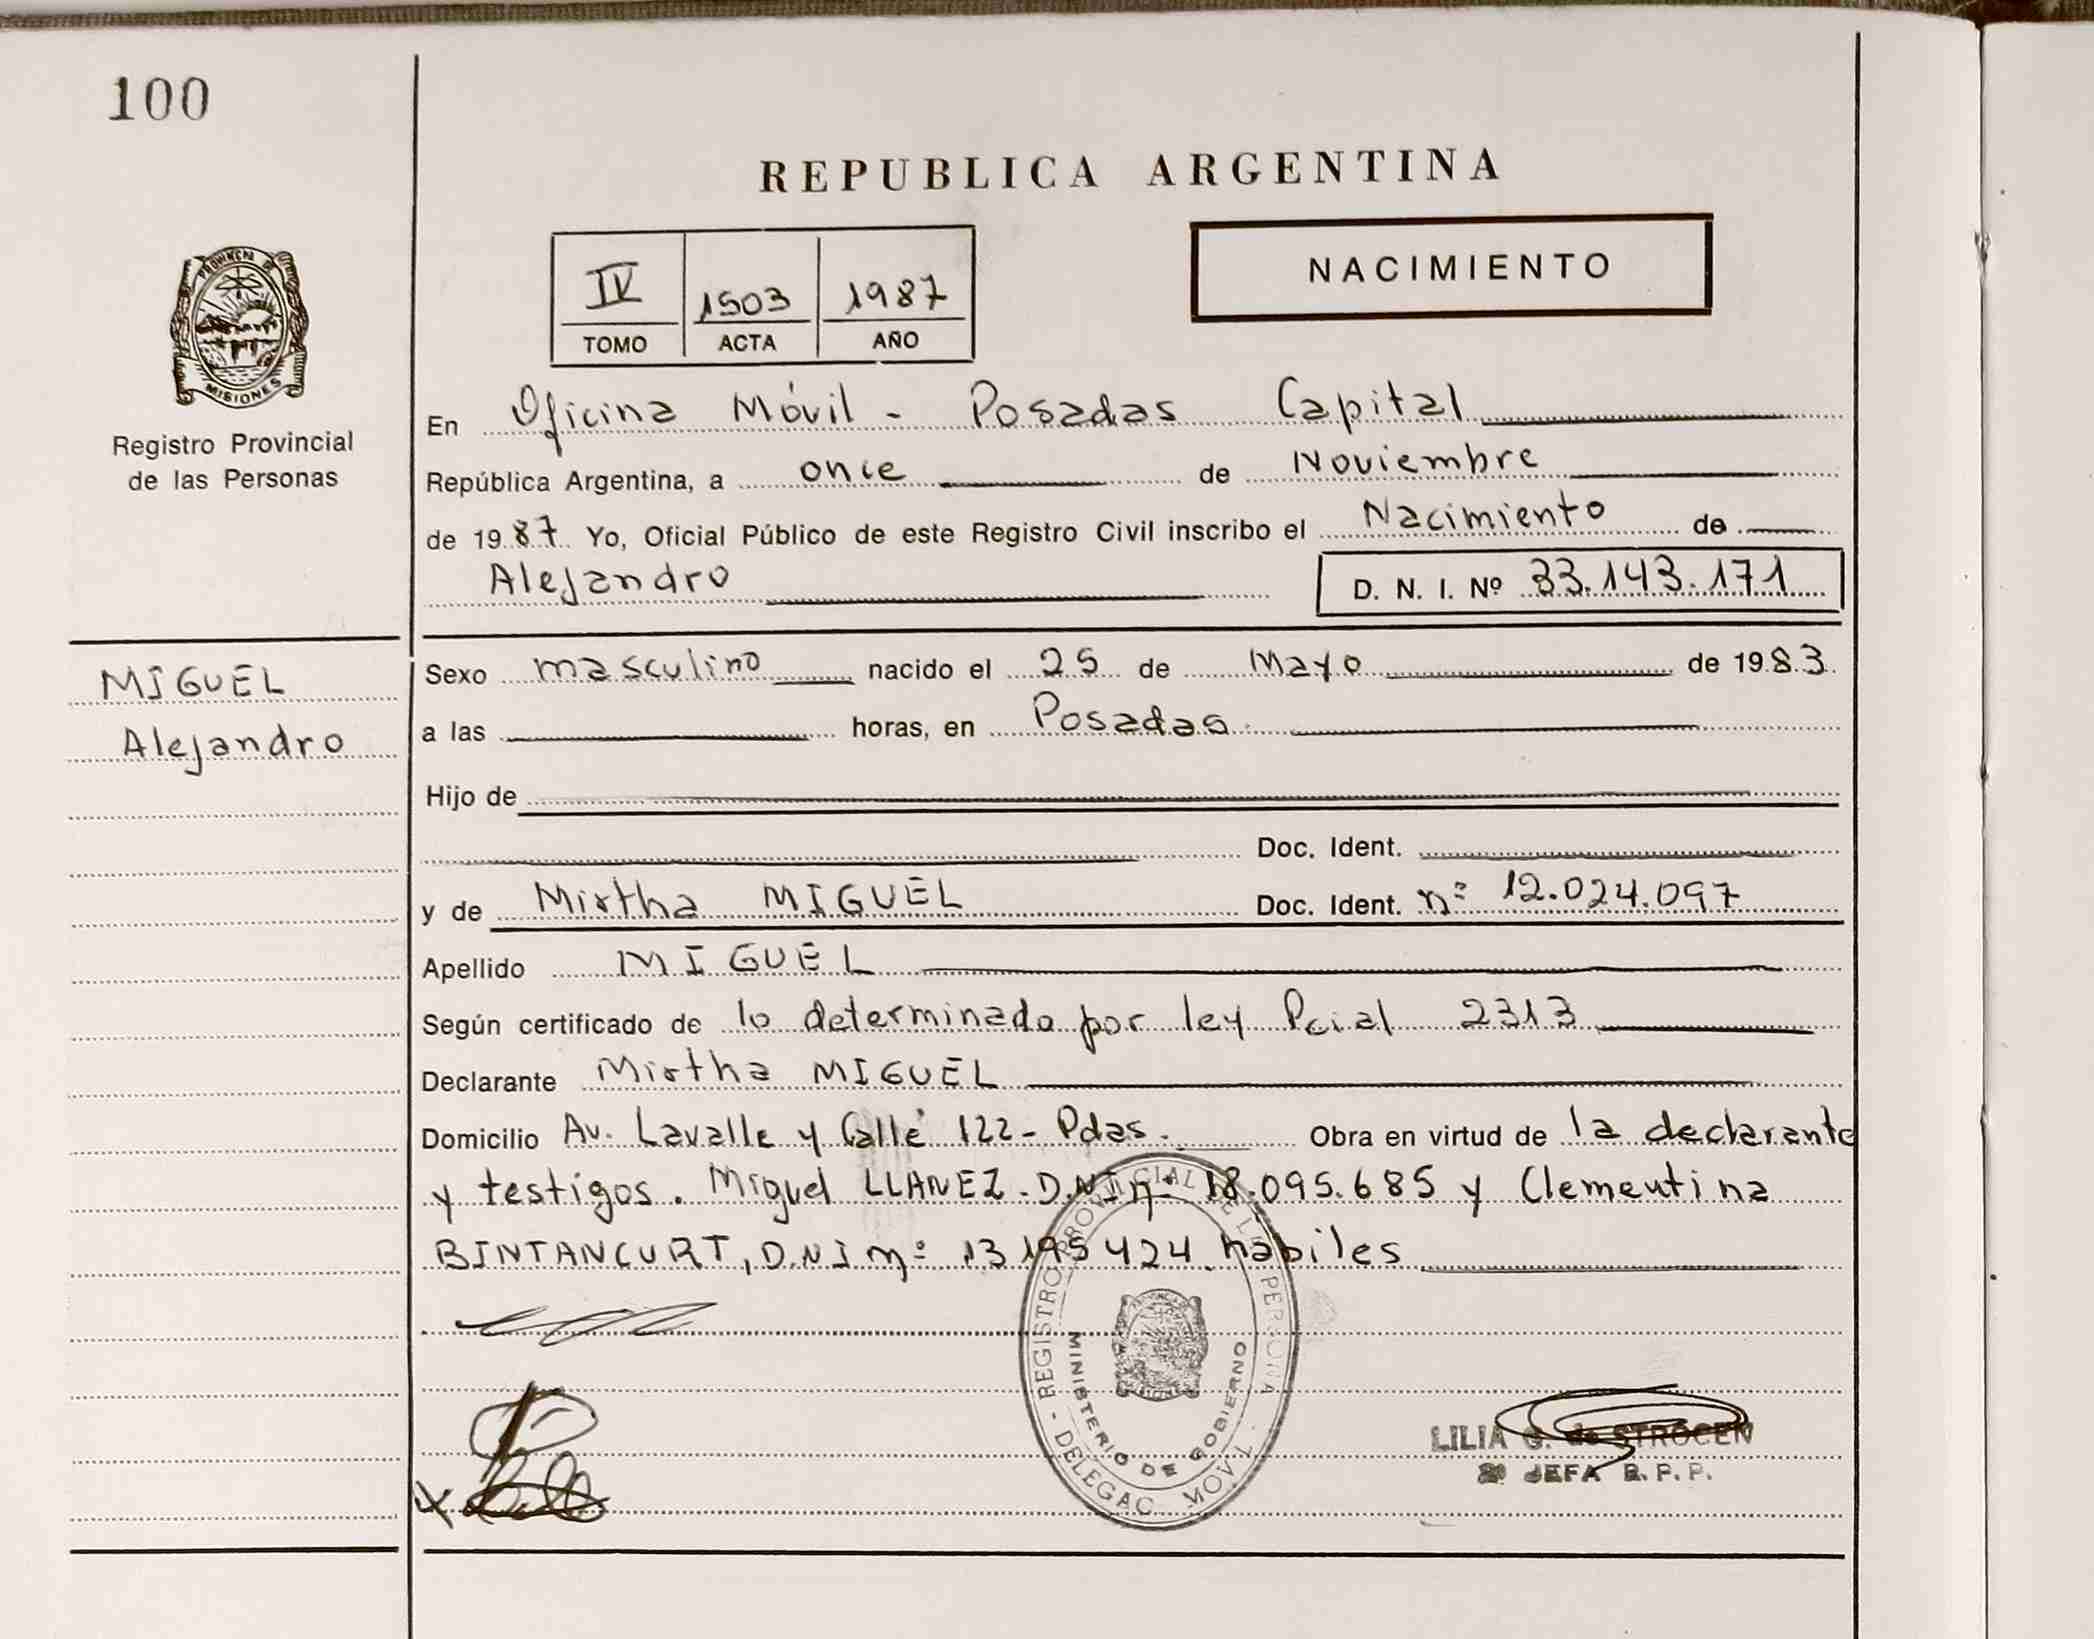 100
REPUBLICA ARGENTINA
NACIMIENTO
IV 1503 1987
TOMO ACTA AÑO
PROVINCIA DE
MISIONES
Registro Provincial
de las Personas
En Oficina Móvil - Posadas Capital
República Argentina, a once de Noviembre
de 1987 Yo, Oficial Público de este Registro Civil inscribo el Nacimiento de
Alejandro D. N. I. Nº 33.143.171
MIGUEL
Alejandro
Sexo masculino nacido el 25 de Mayo de 1983
a las horas, en Posadas
Hijo de
Doc. Ident.
y de Mirtha MIGUEL Doc. Ident. nº 12.024.097
Apellido MIGUEL
Según certificado de lo determinado por ley Pcial 2313
Declarante Mirtha MIGUEL
Domicilio Av. Lavalle y Calle 122 - Pdas. Obra en virtud de la declarante
y testigos. Miguel LLANEZ - D.N.I nº 18.095.685 y Clementina
BINTANCURT, D.N.I nº 13 195 424 habiles
REGISTRO PROVINCIAL DE LAS PERSONAS - DELEGAC. MOVIL
MINISTERIO DE GOBIERNO
LILIA G. de STROCEN
2º JEFA R. P. P.